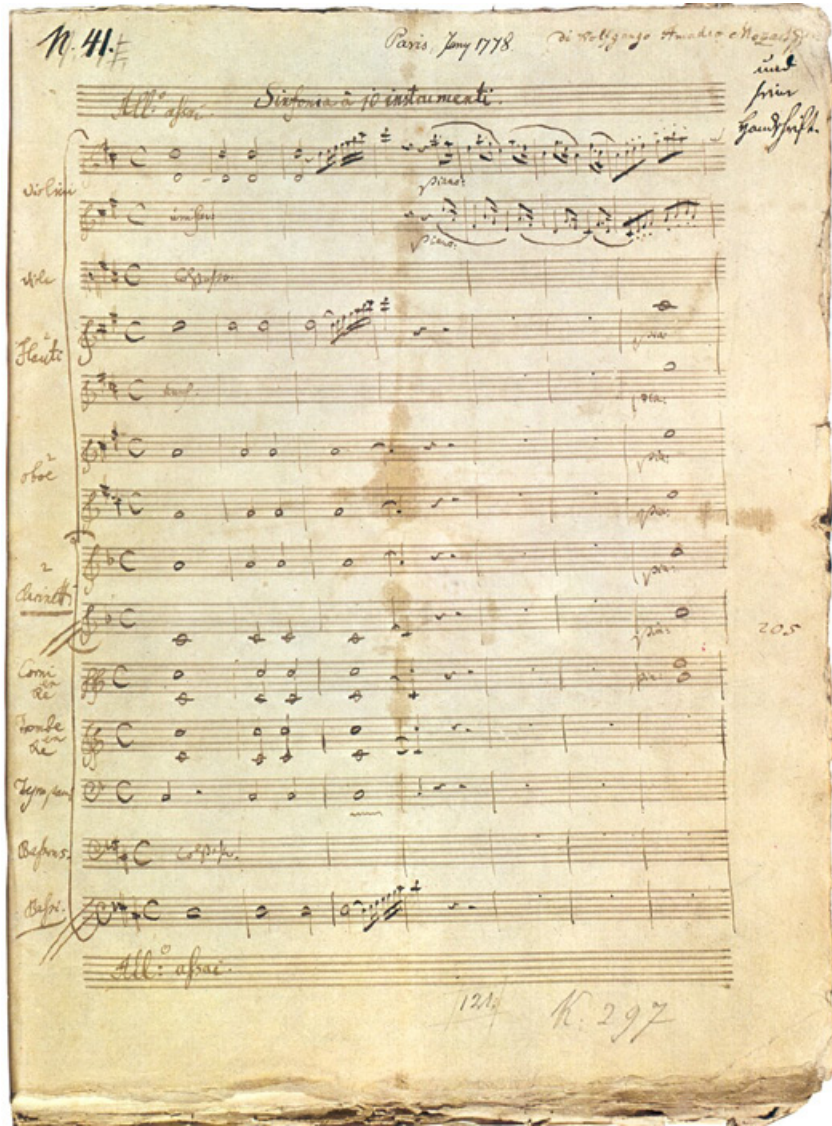 N. 41.
Paris, Jany 1778.
di Wolfgango Amadeo Mozart
und
seine
Handschrift.
All:o assai.
Sinfonia à 10 instrumenti.
Violini
piano:
unissoni
piano:
Viole
Col Basso
2
Flauti
pia:
unis.
pia:
2
oboe
pia:
pia:
2
Clarinetti
pia:
pia:
205
Corni
in
Re
pia:
Trombe
in
Re
Tympani
Col Basso
Bassi.
All:o assai.
121.
K. 297